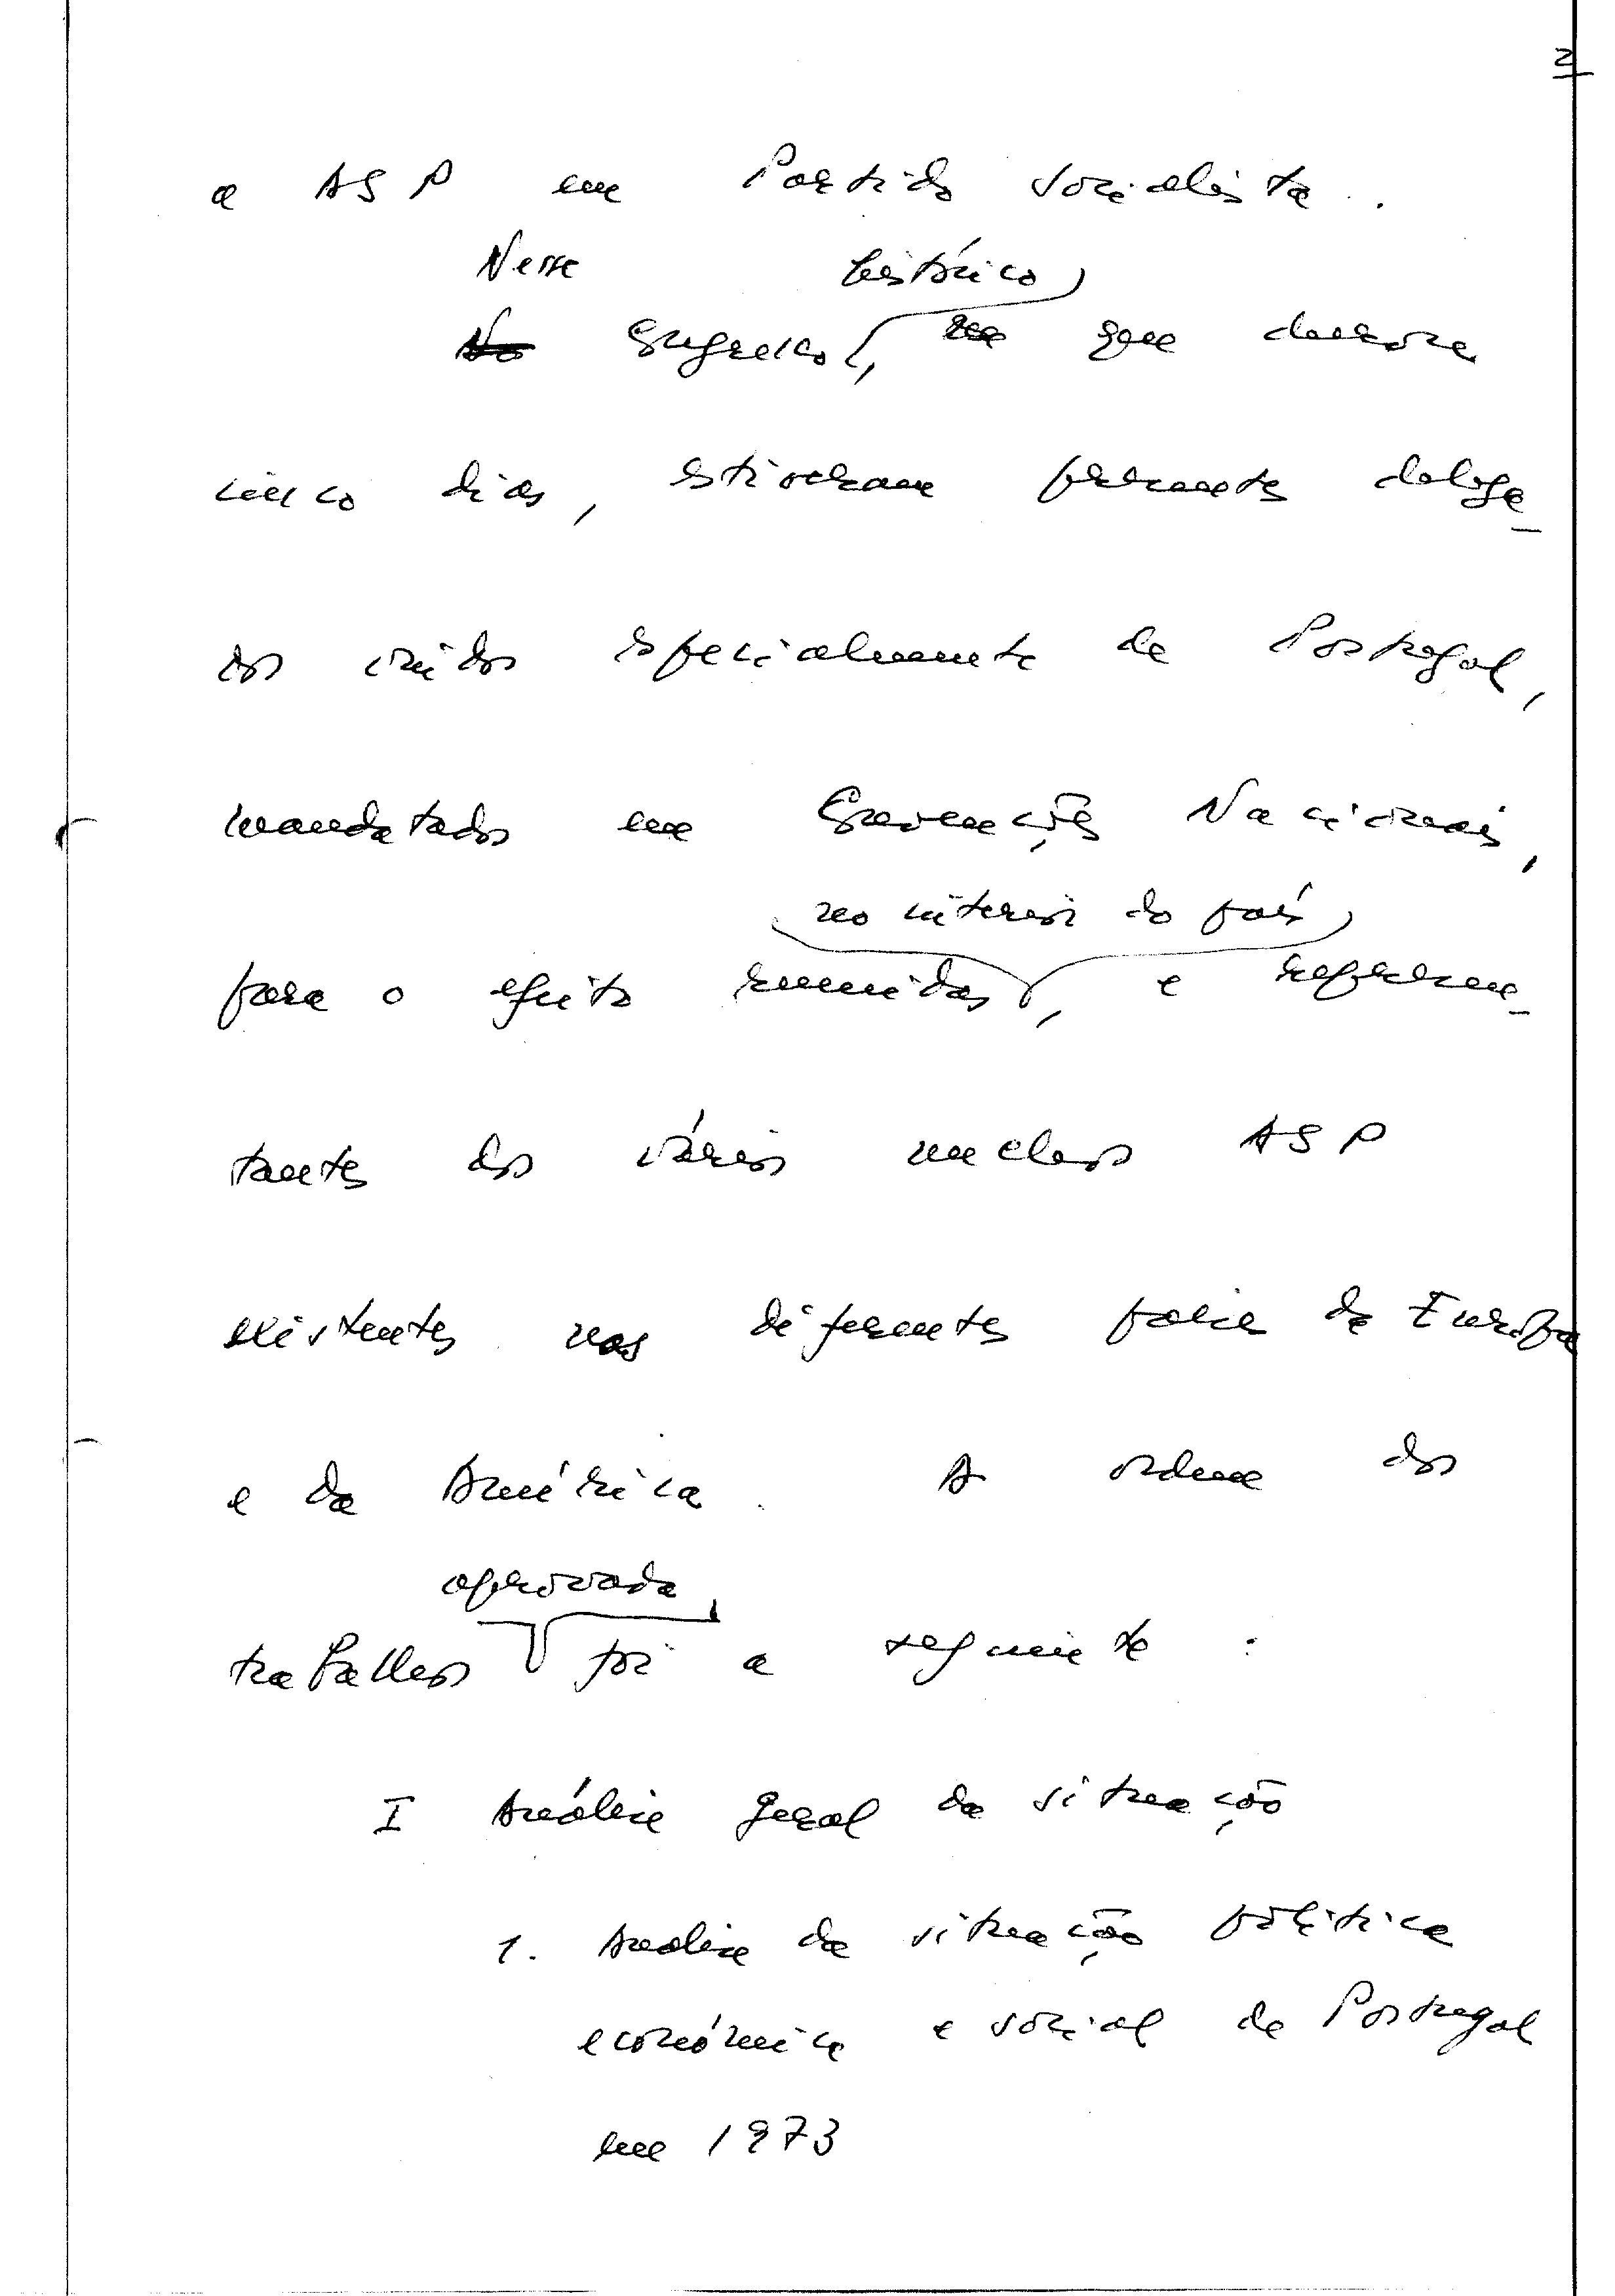 2
a ASP em Partido Socialista.
Nesse histórico
No Congresso, que
cinco dias, estiveram presentes delega-
dos vindos especialmente de Portugal,
mandatados em Convenções Nacionais,
no interior do país
para o efeito reunidas, e represen-
tantes dos vários nucleos ASP
existentes nos diferentes paises da Europa
e da América. A ordem dos
aprovada
trabalhos foi a seguinte:
I Análise geral da situação
1. Analise da situação política
económica e social de Portugal
em 1973